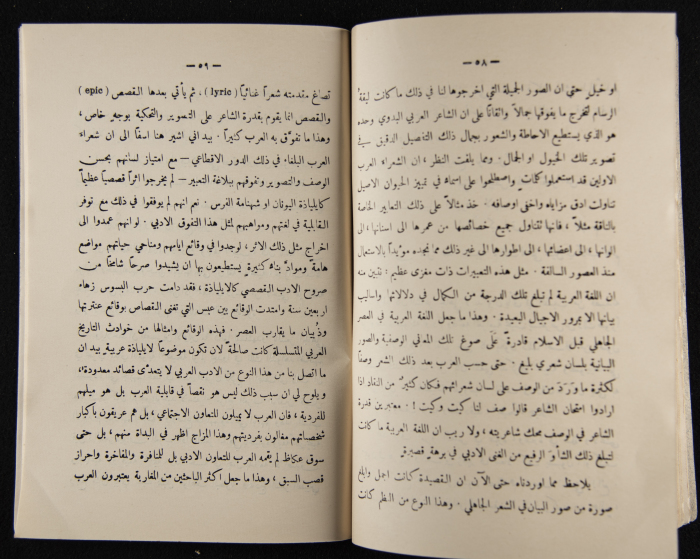 — ٥٨ —
او خيل حتى ان الصور الجميلة التي اخرجوها لنا في ذلك ما كانت ليقة
الرسام لتخرج ما يفوقها جمالاً واتقاناً على ان الشاعر العربي البدوي وحده
هو الذي يستطيع الاحاطة والشعور بجمال ذلك التفصيل الدقيق في
تصوير تلك الخيول او الجمال. ومما يلفت النظر، ان الشعراء العرب
الاولين قد استعملوا كلمات واصطلحوا على اسماء في تمييز الحيوان الاصيل
تناولت ادق مزاياه واخفى اوصافه. خذ مثالاً على ذلك التعابير الخاصة
بالناقة مثلاً، فانها تتناول جميع خصائصها من عمرها الى اسنانها، الى
الوانها، الى اعضائها، الى اطوارها الى غير ذلك مما نجده مؤيداً بالاستعمال
منذ العصور السالفة. مثل هذه التعبيرات ذات مغزى عظيم: تتبين منه
ان اللغة العربية لم تبلغ تلك الدرجة من الكمال في دلالاتها واساليب
بيانها الا بمرور الاجيال البعيدة. وهذا ما جعل اللغة العربية في العصر
الجاهلي قبل الاسلام قادرة على صوغ تلك المعاني الوصفية والصور
البيانية بلسان شعري بليغ. حتى حسب العرب بعد ذلك الشعر وصفاً
لكثرة ما وَرَدَ من الوصف على لسان شعرائهم فكان كثير من النقاد اذا
ارادوا امتحان الشاعر قالوا صف لنا كيت وكيت! . معتبرين قدرة
الشاعر في الوصف محك شاعريته، ولا ريب ان اللغة العربية ما كانت
لتبلغ ذلك الشأو الرفيع من الغنى الادبي في برهة قصيرة
يلاحظ مما اوردناه حتى الآن ان القصيدة كانت اجمل وابلغ
صورة من صور البيان في الشعر الجاهلي. وهذا النوع من النظم كانت
— ٥٩ —
تصاغ مقدمته شعراً غنائياً (lyric)، ثم يأتي بعدها القصص (epic)
والقصص انما يقوم بقدرة الشاعر على التصوير والتحكية بوجه خاص،
وهذا ما تفوّق به العرب كثيراً. بيد اني اشير هنا اسفاً الى ان شعراء
العرب البلغاء في ذلك الدور الاقطاعي — مع امتياز لسانهم بحسن
الوصف والتصوير وتفوقهم ببلاغة التعبير — لم يخرجوا اثراً قصصياً عظيماً
كايلياذة اليونان او شهنامة الفرس. نعم انهم لم يوفقوا في ذلك مع توفر
القابلية في لغتهم ومواهبهم لمثل هذا التفوق الادبي. لو انهم عمدوا الى
اخراج مثل ذلك الاثر، لوجدوا في وقائع ايامهم ومناحي حياتهم مواضع
هامة ومواد بناء كثيرة يستطيعون بها ان يشيدوا صرحاً شامخاً من
صروح الادب القصصي كالايلياذة، فقد دامت حرب البسوس زهاء
اربعين سنة وامتدت الوقائع بين عبس التي تغنى القصاص بوقائع عنترتها
وذُبيان ما يقارب العصر. فهذه الوقائع وامثالها من حوادث التاريخ
العربي المتسلسلة كانت صالحة لان تكون موضوعاً لايلياذة عربية بيد ان
ما اتصل بنا من هذا النوع من الادب العربي لا يتعدى قصائد معدودة،
ويلوح لي ان سبب ذلك ليس هو نقصاً في قابلية العرب بل هو ميلهم
للفردية، فان العرب لا يميلون للتعاون الاجتماعي، بل هم عريقون بأكبار
شخصياتهم مغالون بفرديتهم وهذا المزاج اظهر في البداة منهم، بل حتى
سوق عكاظ لم يقمه العرب للتعاون الادبي بل للمنافرة والمفاخرة واحراز
قصب السبق، وهذا ما جعل اكثر الباحثين من المغاربة يعتبرون العرب